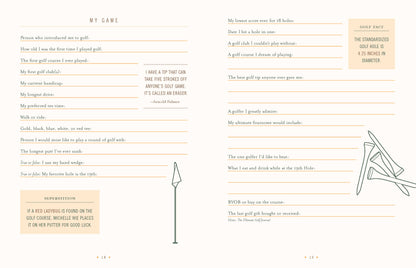 MY GAME
Person who introduced me to golf:
How old I was the first time I played golf:
The first golf course I ever played:
My first golf club(s):
My current handicap:
My longest drive:
My preferred tee time:
Walk or ride:
Gold, black, blue, white, or red tee:
Person I would most like to play a round of golf with:
The longest putt I've ever sunk:
True or false: I use my sand wedge:
True or false: My favorite hole is the 19th:
I HAVE A TIP THAT CAN
TAKE FIVE STROKES OFF
ANYONE'S GOLF GAME.
IT'S CALLED AN ERASER.
—Arnold Palmer
SUPERSTITION
IF A RED LADYBUG IS FOUND ON THE
GOLF COURSE, MICHELLE WIE PLACES
IT ON HER PUTTER FOR GOOD LUCK.
My lowest score ever for 18 holes:
Date I hit a hole in one:
A golf club I couldn't play without:
A golf course I dream of playing:
The best golf tip anyone ever gave me:
A golfer I greatly admire:
My ultimate foursome would include:
The one golfer I'd like to beat:
What I eat and drink while at the 19th Hole:
BYOB or buy on the course:
The last golf gift bought or received:
GOLF FACT
THE STANDARDIZED
GOLF HOLE IS
4.25 INCHES IN
DIAMETER.